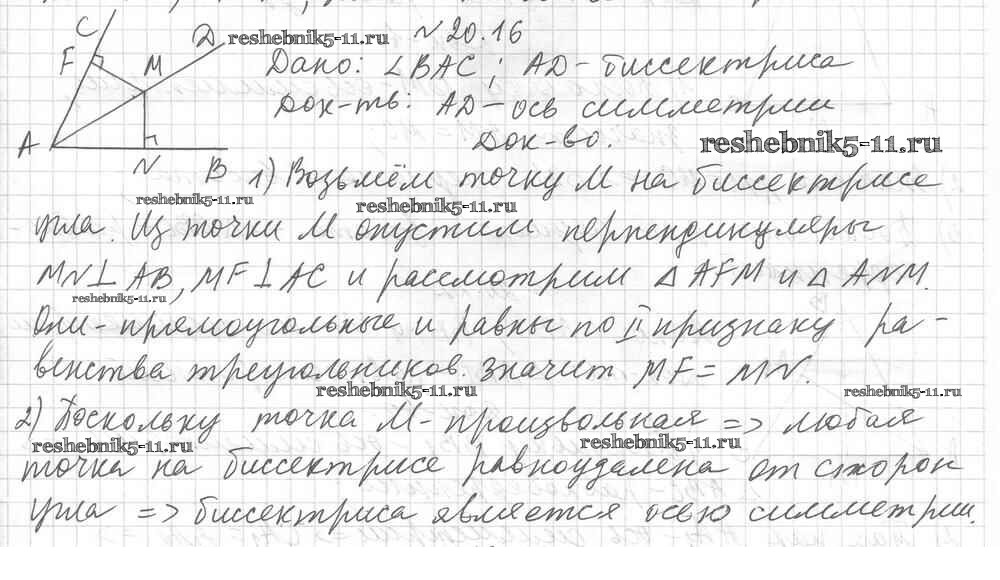 C
D reshebnik5-11.ru №20.16
F M Дано: ∠BAC; AD - биссектриса
Док-ть: AD - ось симметрии
A Док-во. reshebnik5-11.ru
N B 1) Возьмём точку M на биссектрисе
reshebnik5-11.ru reshebnik5-11.ru
угла. Из точки M опустим перпендикуляры
MN⊥AB, MF⊥AC и рассмотрим △AFM и △ANM.
reshebnik5-11.ru
Они - прямоугольные и равны по II признаку ра-
венства треугольников. Значит MF = MN.
reshebnik5-11.ru reshebnik5-11.ru
2) Поскольку точка M - произвольная => любая
reshebnik5-11.ru reshebnik5-11.ru
точка на биссектрисе равноудалена от сторон
угла => биссектриса является осью симметрии.